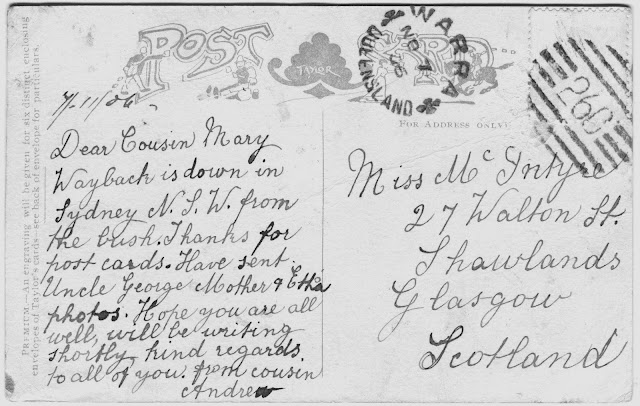 POST CARD
TAYLOR
WARRA
NO 7
06
QUEENSLAND
260
FOR ADDRESS ONLY
PREMIUM.—An engraving will be given for six distinct enclosing
envelopes of Taylor's cards—see back of envelope for particulars.
7/11/06
Dear Cousin Mary
Wayback is down in
Sydney N.S.W. from
the bush. Thanks for
post cards. Have sent
Uncle George Mother &
photos. Hope you are all
well, will be writing
shortly, kind regards
to all of you. from cousin
Andrew
Miss McIntyre
27 Walton St.
Shawlands
Glasgow
Scotland